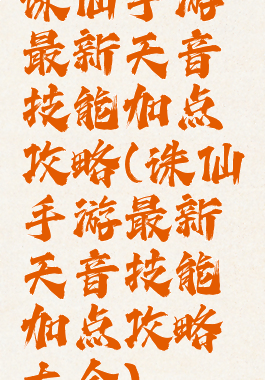 诛仙手游
最新天音
技能加点
攻略(诛仙
手游最新
天音技能
加点攻略
大全)